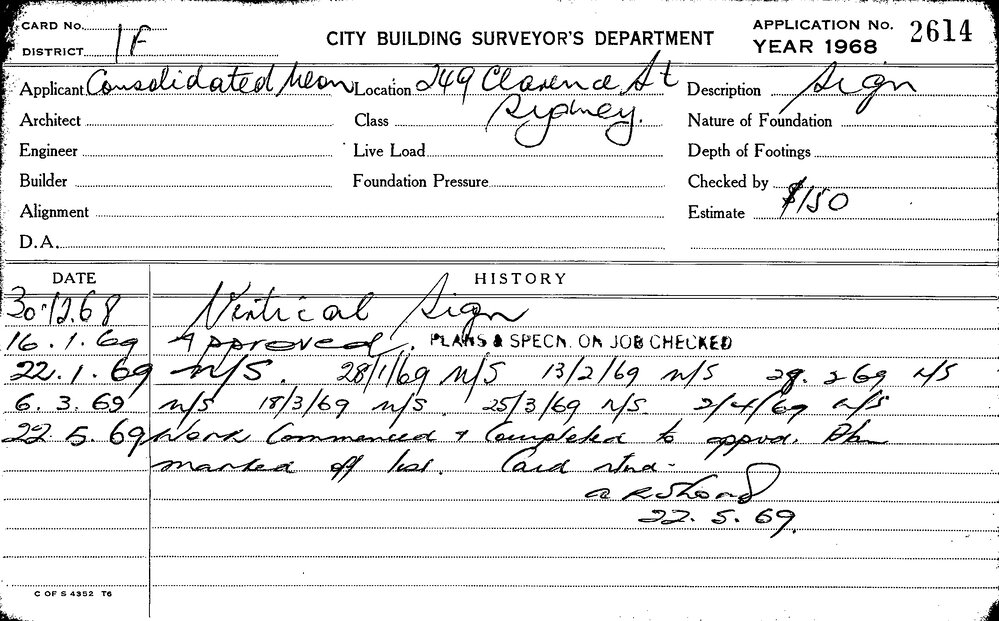 CARD No.
APPLICATION No. 2614
DISTRICT 1F
CITY BUILDING SURVEYOR'S DEPARTMENT
YEAR 1968
Applicant Consolidated Neon Location 249 Clarence St Description Sign
Sydney.
Architect Class Nature of Foundation
Engineer Live Load Depth of Footings
Builder Foundation Pressure Checked by
Alignment Estimate $150
D.A.
DATE HISTORY
30.12.68 Vertical Sign
16.1.69 Approved. PLANS & SPECN. ON JOB CHECKED
22.1.69 N/S. 28/1/69 N/S 13/2/69 N/S 2 69 N/S
6.3.69 N/S 18/3/69 N/S. 25/3/69 N/S. 2/4/69 N/S
22.5.69 Work Commenced & Completed to approd.
marked off list. Card
22.5.69.
C OF S 4352 T6